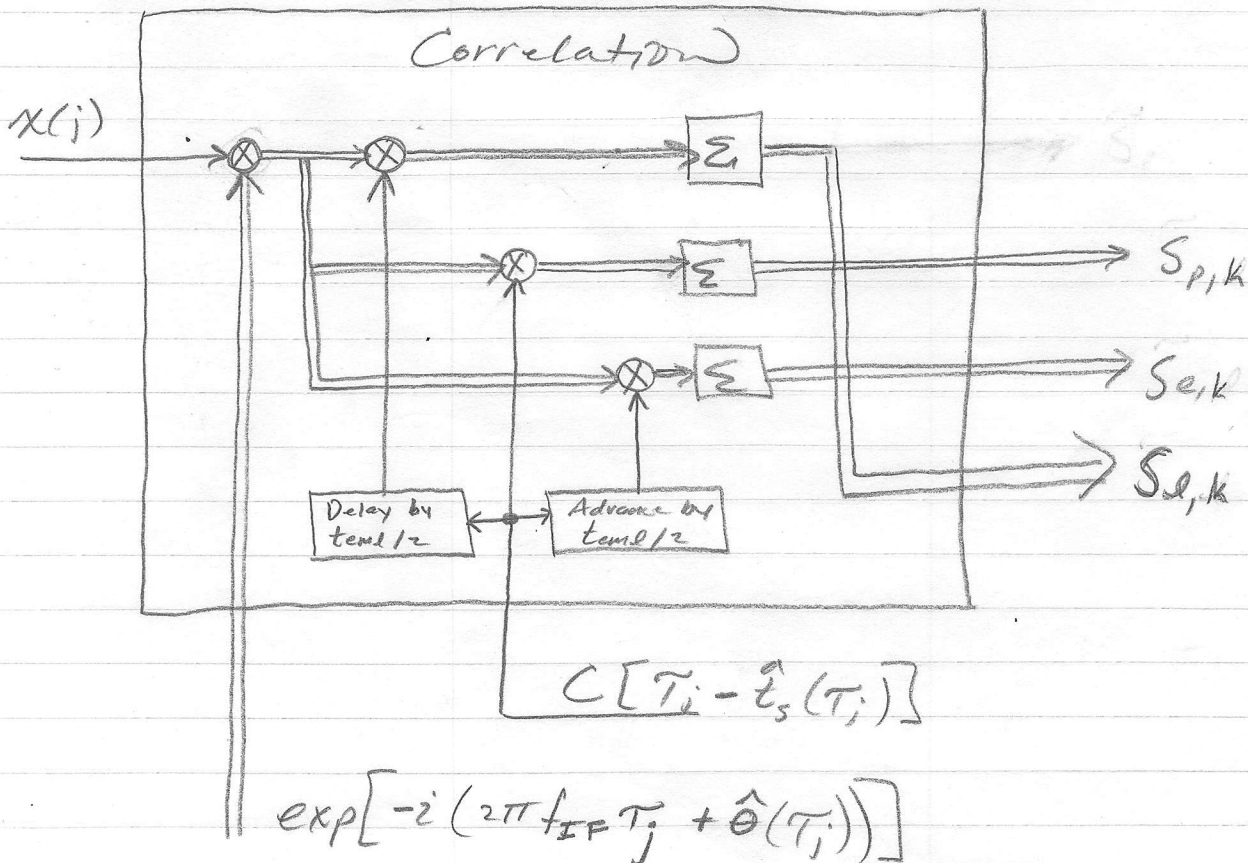 Correlation
x(j)
Σ
Σ
S_{p,k}
Σ
S_{e,k}
S_{l,k}
Delay by
teml/2
Advance by
teml/2
C[τ_j - t̂_s(τ_j)]
exp[-i(2πf_{IF}τ_j + θ̂(τ_j))]